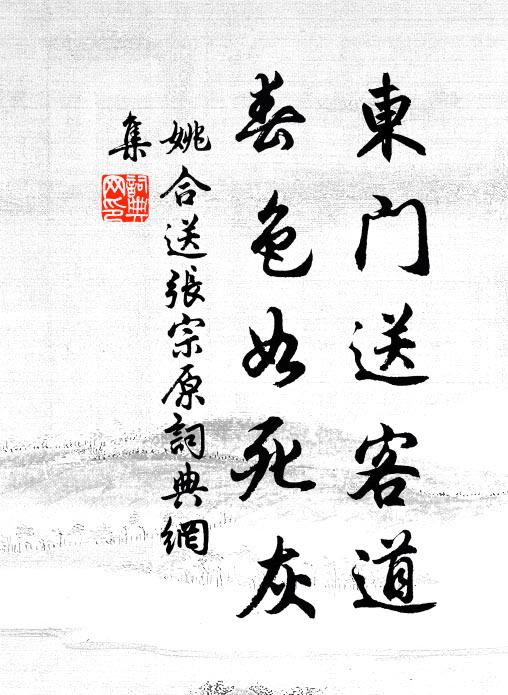 東门送客道
春色如死灰
姚合送張宗原詞典網
集
詞典网印